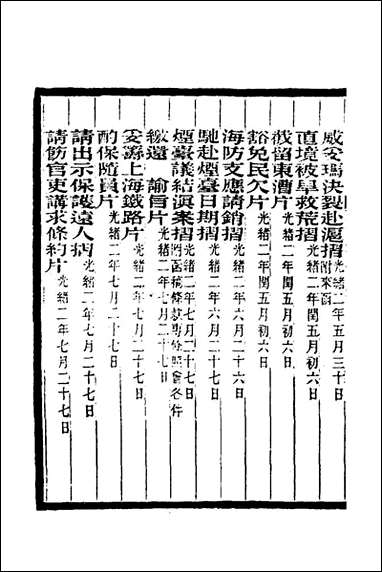 威妥瑪決裂赴滬摺光緒二年五月三十日
直境被旱救荒摺光緒二年閏五月初六日
截留東漕片光緒二年閏五月初六日
豁免民欠片光緒二年閏五月初六日
海防支應請銷摺光緒二年六月二十六日
馳赴煙臺日期摺光緒二年六月二十七日
煙臺議結滇案摺光緒二年七月二十七日
繳還諭旨片光緒二年七月二十七日
妥籌上海鐵路片光緒二年七月二十七日
酌保隨員片光緒二年七月二十七日
請出示保護遠人摺光緒二年七月二十七日
請飭官吏講求條約片光緒二年七月二十七日